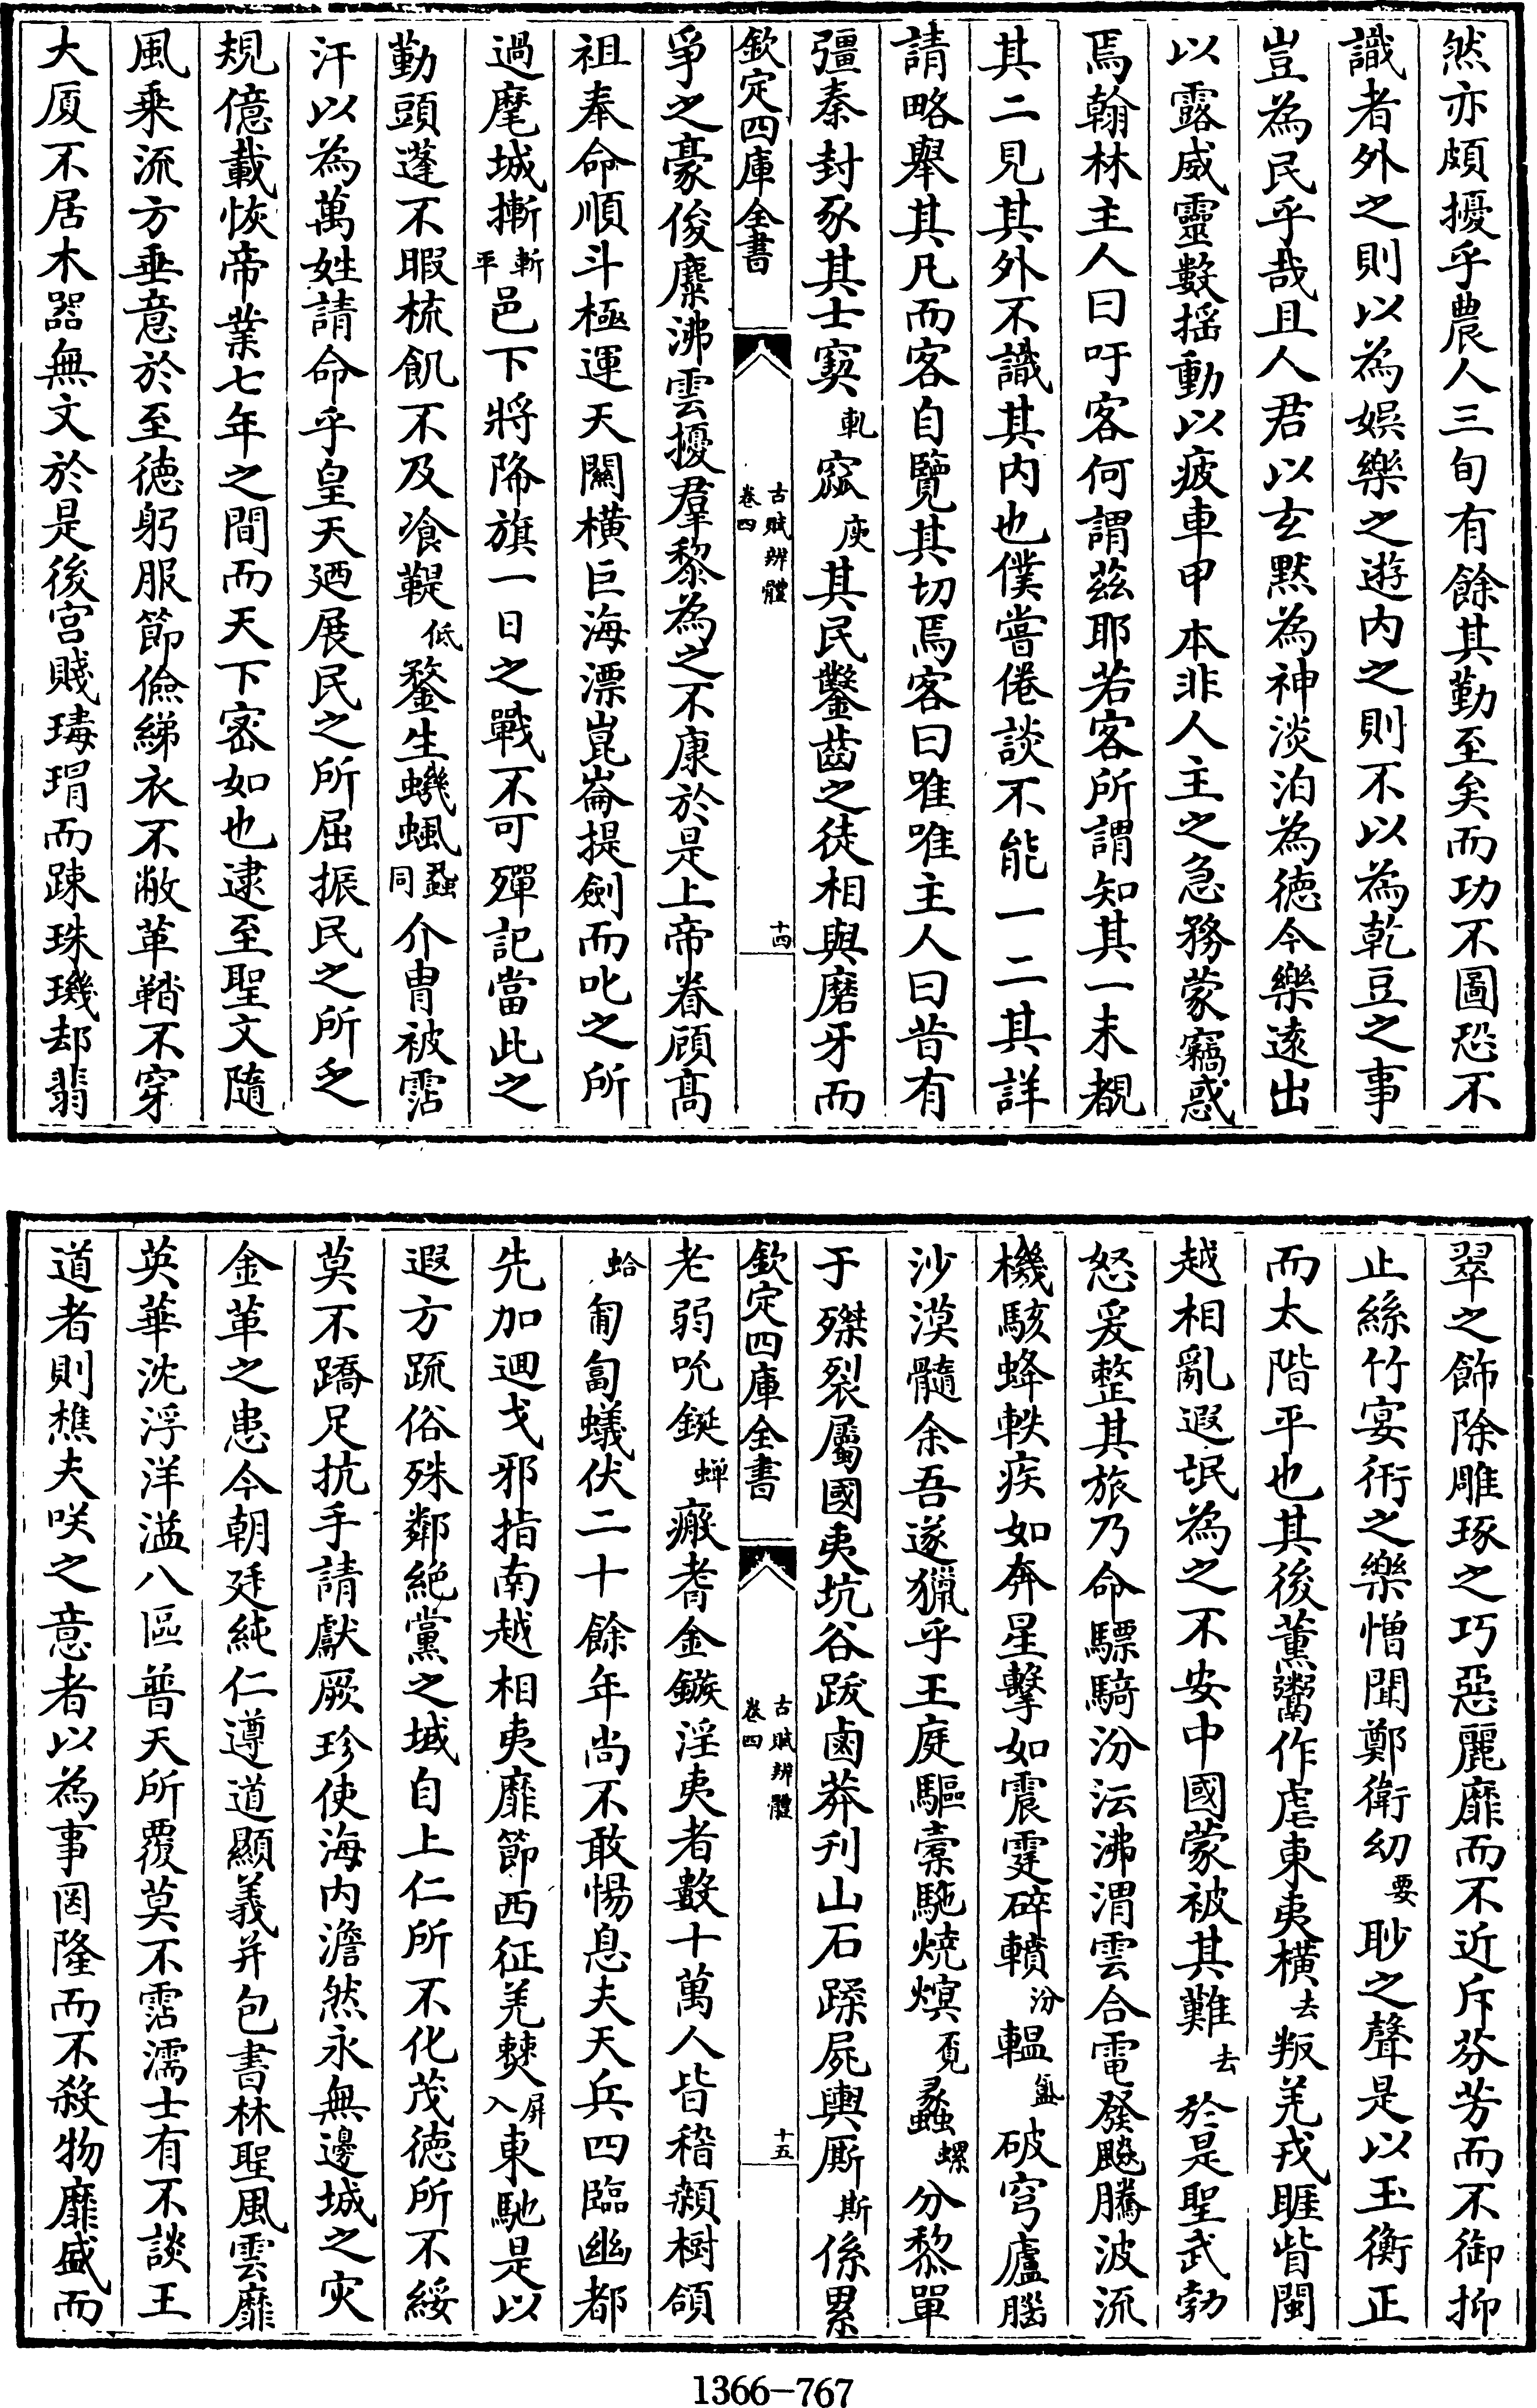 然亦頗擾乎農人三旬有餘其勤至矣而功不圖恐不
識者外之則以為娯樂之遊内之則不以為乾豆之事
豈為民乎哉且人君以玄黙為神淡泊為徳今樂逺出
以露威靈數揺動以疲車甲本非人主之急務蒙竊惑
焉翰林主人曰吁客何謂茲耶若客所謂知其一未覩
其二見其外不識其内也僕嘗倦談不能一二其詳
請略舉其凡而客自覽其切焉客曰唯唯主人曰昔有
彊秦封豕其士窫軋窳庾其民鑿齒之徒相與磨牙而
欽定四庫全書 古賦辨體 卷四 十四
爭之豪俊麋沸雲擾羣黎為之不康於是上帝眷顧髙
祖奉命順斗極運天闗横巨海漂崑崙提劍而叱之所
過麾城摲斬平邑下將降旗一日之戰不可殫記當此之
勤頭蓬不暇梳飢不及飡鞮低鍪生蟣蝨蝨同介胄被霑
汗以為萬姓請命乎皇天廼展民之所屈振民之所乏
規億載恢帝業七年之間而天下宻如也逮至聖文隨
風乗流方垂意於至徳躬服節儉綈衣不敝革鞜不穿
大厦不居木器無文於是後宫賤瑇瑁而踈珠璣却翡
翠之飾除雕琢之巧惡麗靡而不近斥芬芳而不御抑
止絲竹宴衎之樂憎聞鄭衛幼要眇之聲是以玉衡正
而太階平也其後薫鬻作虐東夷横去叛羌戎睚眥閩
越相亂遐氓為之不安中國蒙被其難去於是聖武勃
怒爰整其旅乃命驃騎汾沄沸渭雲合電發飈騰波流
機駭蜂軼疾如奔星擊如震霆碎轒汾轀氲破穹廬腦
沙漠髓余吾遂獵乎王庭驅橐駞燒熐覓蠡螺分黎單
于磔裂屬國夷坑谷跋鹵莽刋山石蹂屍輿厮斯係累
欽定四庫全書 古賦辨體 卷四 十五
老弱吮鋋蟬瘢耆金鏃淫夷者數十萬人皆稽顙樹頷
蛤匍匐蟻伏二十餘年尚不敢惕息夫天兵四臨幽都
先加迴戈邪指南越相夷靡節西征羌僰屏入東馳是以
遐方疏俗殊鄰絶黨之域自上仁所不化茂徳所不綏
莫不蹻足抗手請獻厥珍使海内澹然永無邊城之灾
金革之患今朝廷純仁遵道顯義并包書林聖風雲靡
英華沈浮洋溢八區普天所覆莫不霑濡士有不談王
道者則樵夫咲之意者以為事罔隆而不殺物靡盛而
1366-767